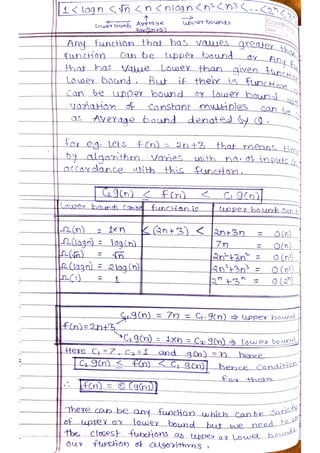 1 < logn < √n < n < nlogn < n² < n³ < --- < 2ⁿ < 3ⁿ
Lower bounds Average upper bounds
for (2n+3)
Any function that has values greater than
function can be upper bound or Any
that has value lower than given function
Lower bound. But if their is function
can be upper bound or lower bound with
variation of constant multiples can be
as Average bound denoted by Θ.
for e.g. lets f(n) = 2n+3 that means time
by algorithm varies with no. of inputs in
accordance with this function.
C₂g(n) ≤ f(n) ≤ C₁g(n)
Lower bounds function is upper bounds
Ω(n) = 1xn ≤ (2n+3) ≤ 2n+3n = O(n)
Ω(logn) = log(n) 7n = O(n)
Ω(√n) = √n 2n²+3n² = O(n²)
Ω(logn) = 2log(n) 2n³+3n³ = O(n³)
Ω(1) = 1 2ⁿ+3ⁿ = O(2ⁿ)
C₁g(n) = 7n = C₁.g(n) ⇒ upper bound
f(n)=2n+3
C₂g(n) = 1xn = C₂.g(n) ⇒ lower bound
Here C₁=7, C₂=1 and g(n)=n hence
C₂g(n) ≤ f(n) ≤ C₁g(n) hence condition
for theta
∴ f(n) = Θ(g(n))
There can be any function which can be
of upper or lower bound but we need to
the closest functions as upper or Lower bounds
our function of algorithms.